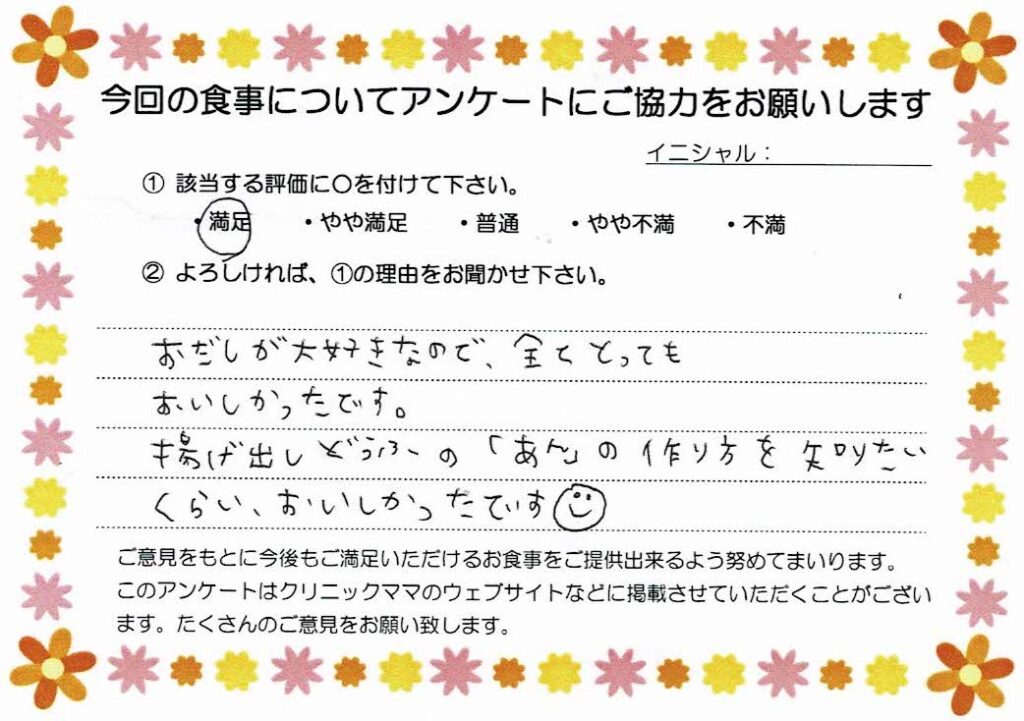 今回の食事についてアンケートにご協力をお願いします
イニシャル：
① 該当する評価に〇を付けて下さい。
・満足 ・やや満足 ・普通 ・やや不満 ・不満
② よろしければ、①の理由をお聞かせ下さい。
おだしが大好きなので、全てとっても
おいしかったです。
揚げ出しどうふの「あん」の作り方を知りたい
くらい、おいしかったです
ご意見をもとに今後もご満足いただけるお食事をご提供出来るよう努めてまいります。
このアンケートはクリニックママのウェブサイトなどに掲載させていただくことがござい
ます。たくさんのご意見をお願い致します。